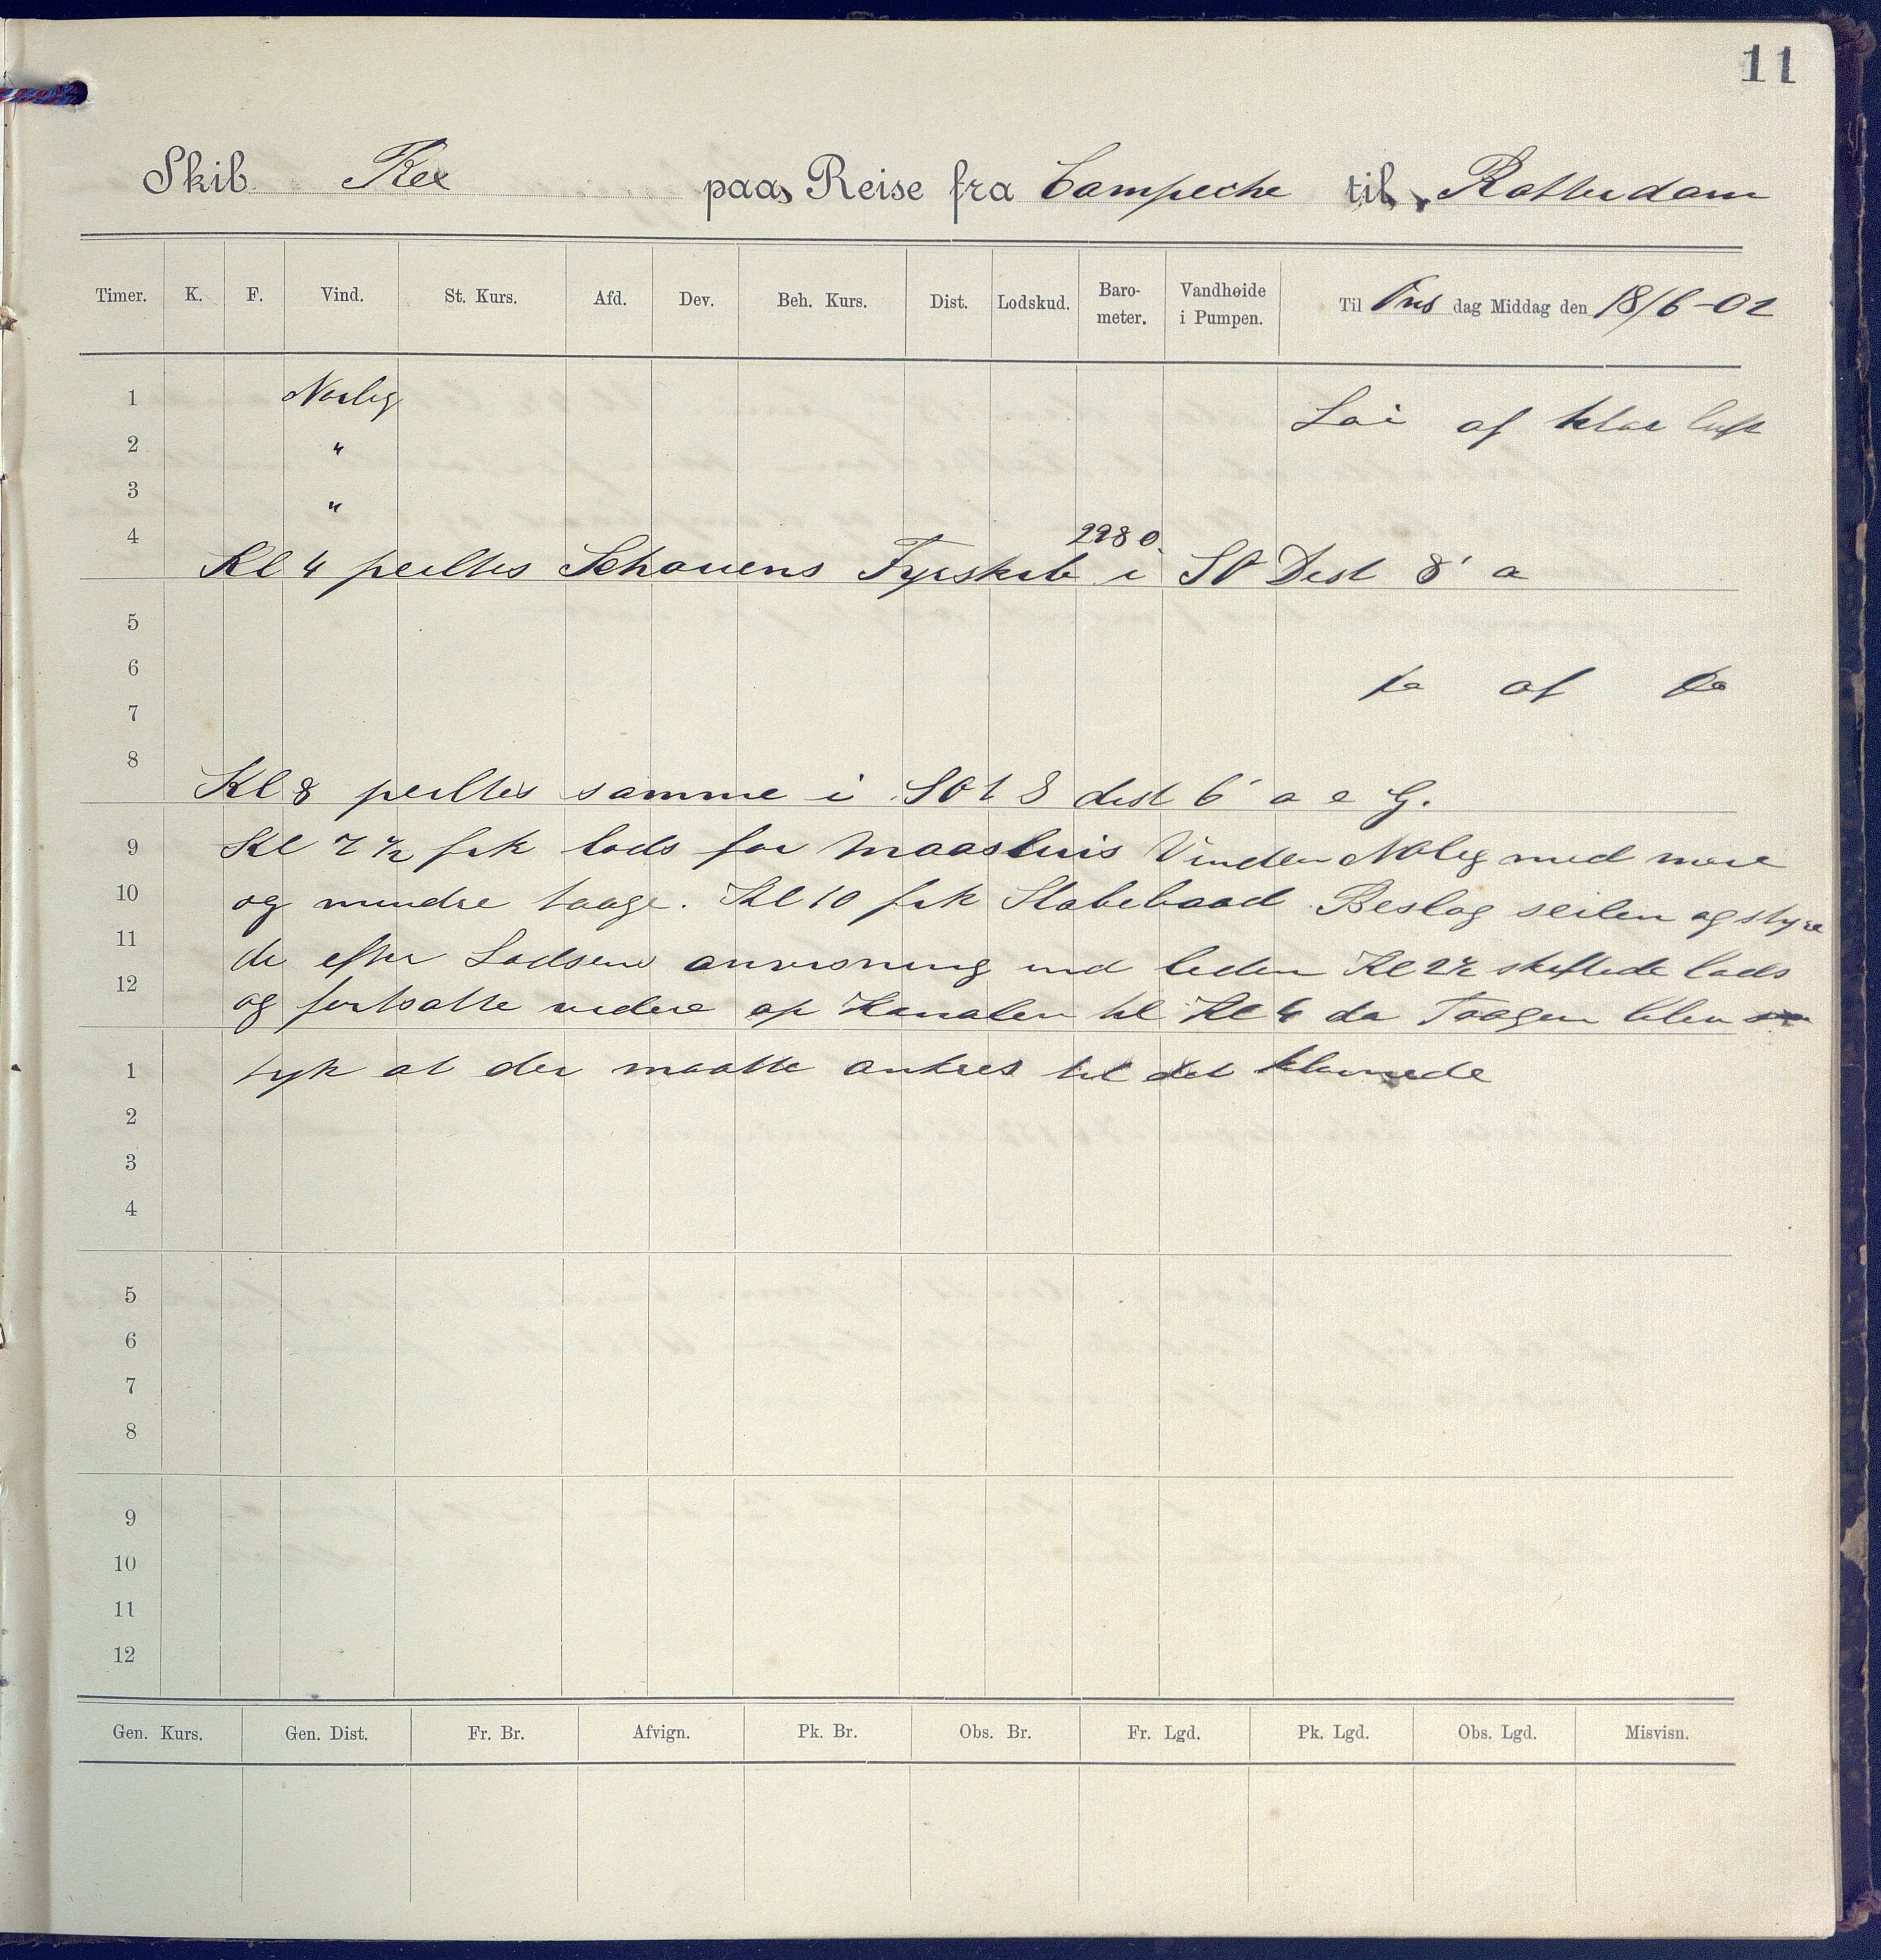 11
Skib Rex paa Reise fra Campeche til Rotterdam
Timer. K. F. Vind. St. Kurs. Afd. Dev. Beh. Kurs. Dist. Lodskud. Baro-meter. Vandhøide i Pumpen. Til Ons dag Middag den 18/6-02
1 Norlig Lai af klar luft
2 "
3 "
4 2980
Kl 4 peiltes Schouens Fyrskib i SO Dist 8' a
5
6 do af do
7
8
Kl 8 peiltes samme i SOtS dist 6' a e G.
9 Kl 7 1/2 fik lods for Maasluis Vinden NOlig med mere
10 og mindre taage. Kl 10 fik Slabebaad Beslog seilen og styre
11 de efter Lodsens anvisning ind leden Kl 2 1/2 skiftede lods
12 og fortsatte videre op Kanalen til Kl 4 da Taagen blev saa
1 tyk at der maatte ankres til det klarnede
2
3
4
5
6
7
8
9
10
11
12
Gen. Kurs. Gen. Dist. Fr. Br. Afvign. Pk. Br. Obs. Br. Fr. Lgd. Pk. Lgd. Obs. Lgd. Misvisn.